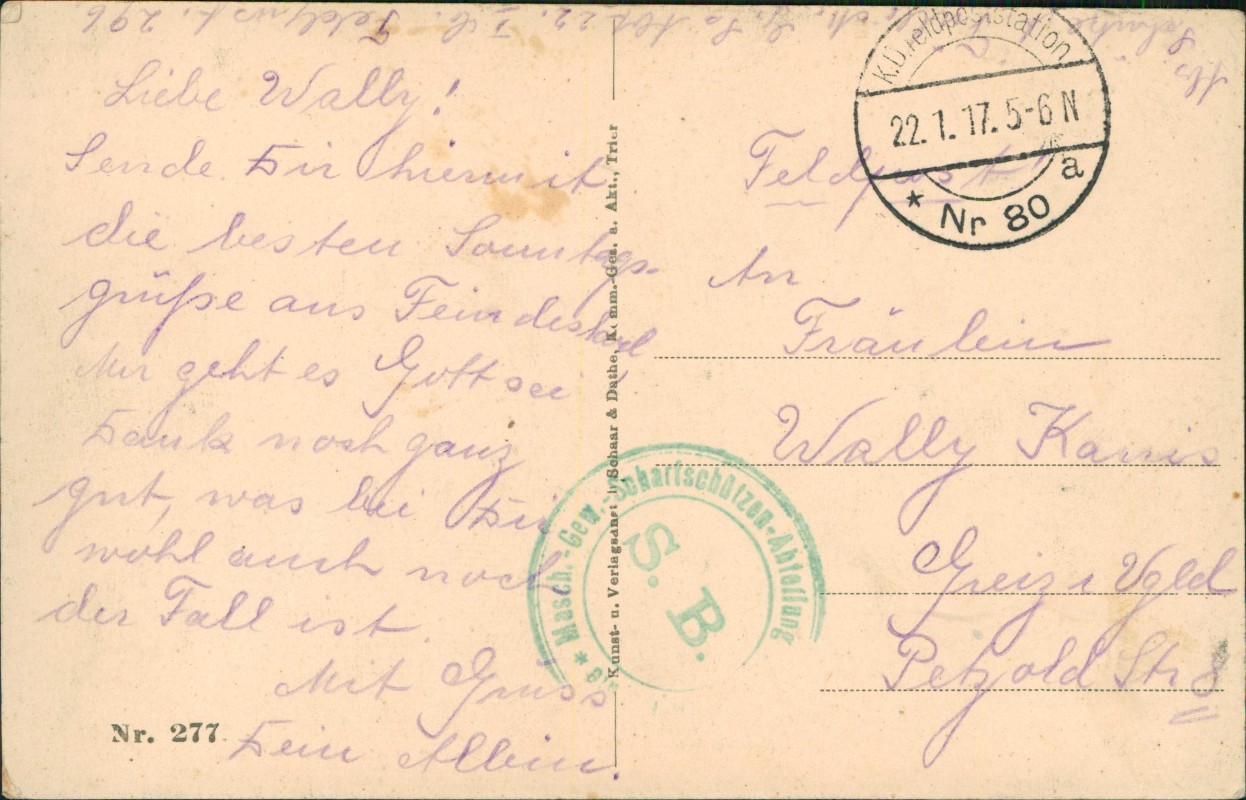 Feldpost. 296
Liebe Wally!
Sende Dir hiermit
die besten Sonntags-
grüße aus Feindesland
Mir geht es Gott sei
Dank noch ganz
gut, was bei Dir
wohl auch noch
der Fall ist.
Mit Gruss
Dein Albin.
Nr. 277
Kunst- u. Verlagsanst. Schaar & Dathe, Komm.-Ges. a. Akt., Trier
* Masch.-Gew.-Scharfschützen-Abteilung
S. B.
K.D. Feldpoststation
22.1.17.5-6N
* Nr 80 a
Feldpost
An
Fräulein
Wally Kanis
Greiz i Vgld
Petzold Str 8